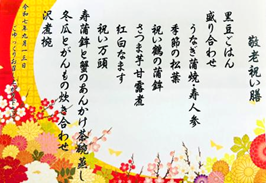 敬老祝い膳
黒豆ごはん
盛り合わせ
うなぎ蒲焼・寿人参
季節の松葉
祝い鶴の蒲鉾
さつま芋甘露煮
紅白なます
祝い万頭
寿蒲鉾と蟹のあんかけ茶碗蒸し
冬瓜とがんもの炊き合わせ
沢煮椀
令和七年九月一三日